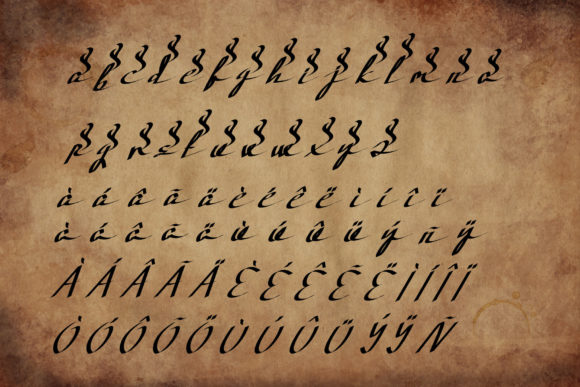 a b c d e f g h i j k l m n o
p q r s t u v w x y z
à á â ã ä è é ê ë ì í î ï
ò ó ô õ ö ù ú û ü ý ñ ÿ
À Á Â Ã Ä È É Ê Ẽ Ë Ì Í Î Ï
Ò Ó Ô Õ Ö Ù Ú Û Ü Ý Ÿ Ñ